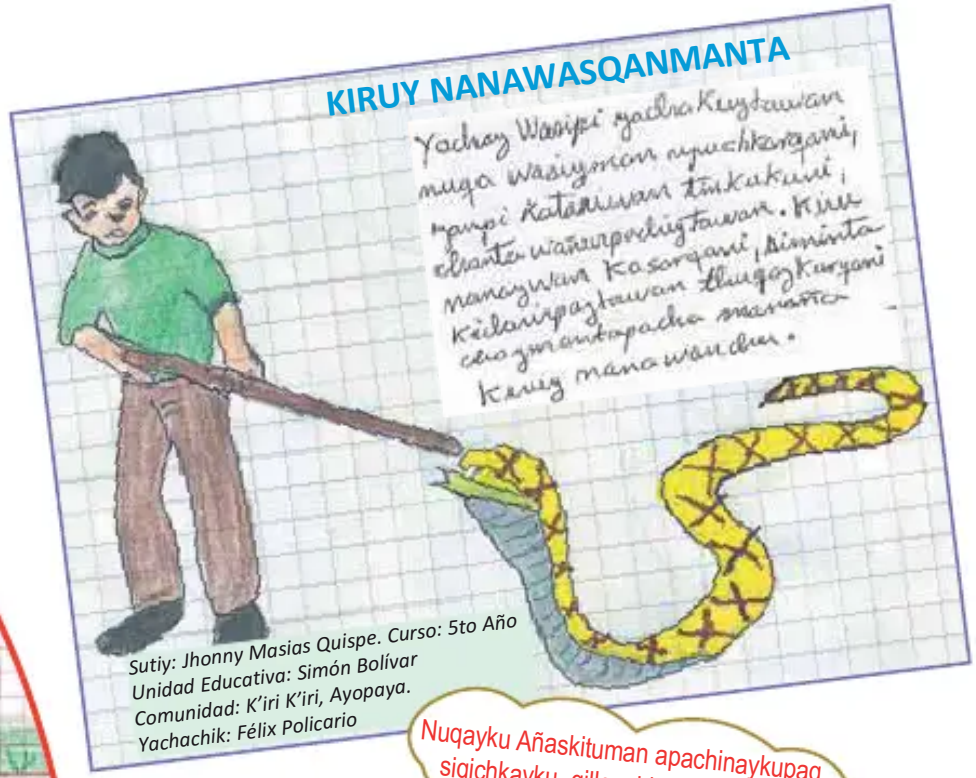 KIRUY NANAWASQANMANTA
Yachay Wasipi yachakuytawan
nuqa wasiyman ripuchkarqani,
ñanpi katariwan tinkukuni,
chanta wañurpachiytawan. Kiru
nanaywan kasarqani, siminta
kicharipaytawan thuqaykurqani
chaymantapacha manaña
kiruy nanawanchu.
Sutiy: Jhonny Masias Quispe. Curso: 5to Año
Unidad Educativa: Simón Bolívar
Comunidad: K'iri K'iri, Ayopaya.
Yachachik: Félix Policario
Nuqayku Añaskituman apachinaykupaq